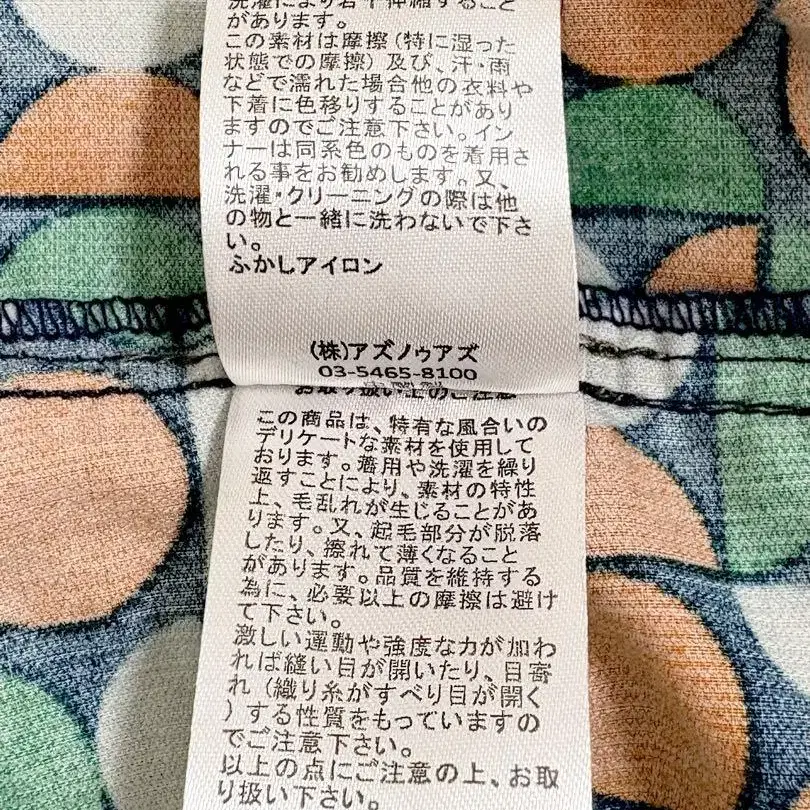 洗濯により若干伸縮すること
があります。
この素材は摩擦(特に湿った
状態での摩擦)及び、汗・雨
などで濡れた場合他の衣料や
下着に色移りすることがあり
ますのでご注意下さい。イン
ナーは同系色のものを着用さ
れる事をお勧めします。又、
洗濯・クリーニングの際は他
の物と一緒に洗わないで下さ
い。
ふかしアイロン
(株)アズノゥアズ
03-5465-8100
お取り扱い上のご注意
この商品は、特有な風合いの
デリケートな素材を使用して
おります。着用や洗濯を繰り
返すことにより、素材の特性
上、毛乱れが生じることがあ
ります。又、起毛部分が脱落
したり、擦れて薄くなること
があります。品質を維持する
為に、必要以上の摩擦は避け
て下さい。
激しい運動や強度な力が加わ
れば縫い目が開いたり、目寄
れ(織り糸がすべり目が開く
)する性質をもっていますの
でご注意下さい。
以上の点にご注意の上、お取
り扱い下さい。